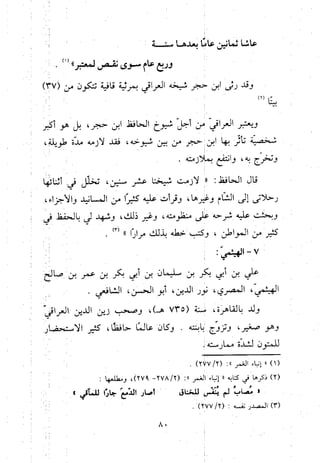 عاشا ثمانين عامًا بعدها سنة
وربع عام سوى نقص لمعتبر» (١) .
وقد رثى ابن حجر شيخه العراقي بمرثية قافية تتكون من (٣٧)
بيتًا (٢)
ويعتبر العراقي من أجلّ شيوخ الحافظ ابن حجر، بل هو أكبر
شخصية تأثر بها ابن حجر من بين شيوخه، فقد لازمه مدة طويلة،
وتخرج به، وانتفع بملازمته .
قال الحافظ: «لازمت شيخنا عشر سنين، تخلّل في أثنائها
رحلاتي إلى الشام وغيرها، وقرأت عليه كثيرًا من المسانيد والأجزاء،
وبحثت عليه شرحه على منظومته، وغير ذلك، وشهد لي بالحفظ في
كثير من المواطن ، وكتب خطه بذلك مرارًا» (٣) .
٧ - الهيثمي:
علي بن أبي بكر بن سليمان بن أبي بكر بن عمر بن صالح
الهيثمي، المصري، نور الدين، أبو الحسن، الشافعي .
ولد بالقاهرة، سنة (٧٣٥ هـ)، وصحب زين الدين العراقي
وهو صغير، وتزوج بابنته . وكان عالمًا حافظًا، كثير الاستحضار
للمتون لشدة ممارسته.
(١) «إنباء الغمر»: (٢٧٧/٢) .
(٢) ذكرها في كتابه «إنباء الغمر»: (٢٧٨/٢-٢٧٩)، ومطلعها :
«مصاب لم يُنفّس للخناق أصار الدمع جارًا للمآقي»
(٣) المصدر نفسه : (٢٧٧/٢) .
٨٠